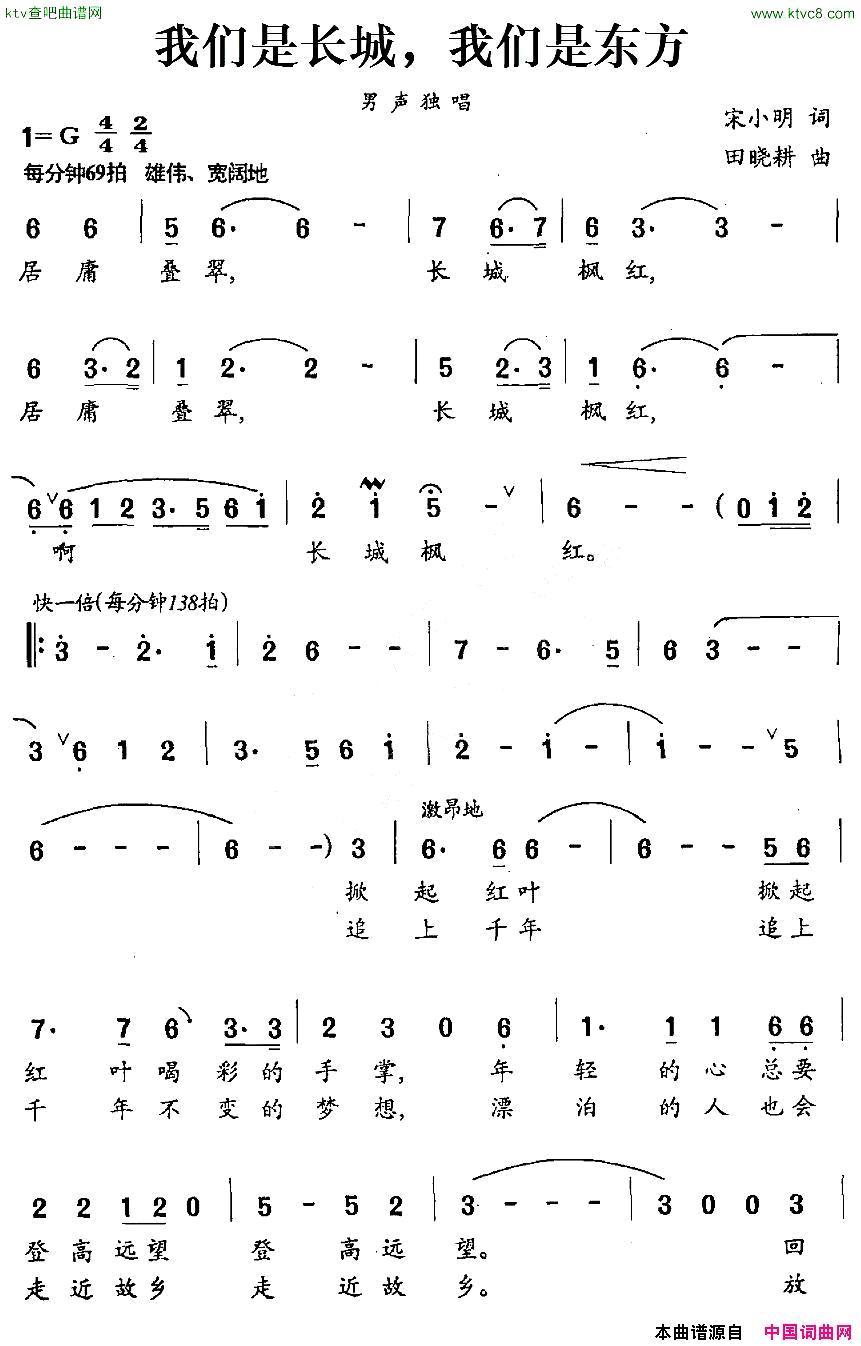 ktv查吧曲谱网
www.ktvc8.com
我们是长城，我们是东方
男声独唱
1=G 4/4 2/4
宋小明 词
田晓耕 曲
每分钟69拍 雄伟、宽阔地
6 6 | 5 6· 6 - | 7 6·7 | 6 3· 3 - |
居庸叠翠, 长城枫红,
6 3·2 | 1 2· 2 - | 5 2·3 | 1 6· 6 - |
居庸叠翠, 长城枫红,
6 ∨ 6 1 2 3·5 6 1 | 2 1 5 - ∨ | 6 - - (0 1 2 |
啊 长城枫红。
快一倍(每分钟138拍)
‖: 3 - 2· 1 | 2 6 - - | 7 - 6· 5 | 6 3 - - |
3 ∨ 6 1 2 | 3· 5 6 1 | 2 - 1 - | 1 - - ∨ 5 |
激昂地
6 - - - | 6 - -) 3 | 6· 6 6 - | 6 - - 5 6 |
掀起红叶 掀起
追上千年 追上
7· 7 6 3·3 | 2 3 0 6 | 1· 1 1 6 6 |
红叶喝彩的手掌, 年轻的心总要
千年不变的梦想, 漂泊的人也会
2 2 1 2 0 | 5 - 5 2 | 3 - - - | 3 0 0 3 |
登高远望 登高远望。 回
走近故乡 走近故乡。 放
本曲谱源自 中国词曲网